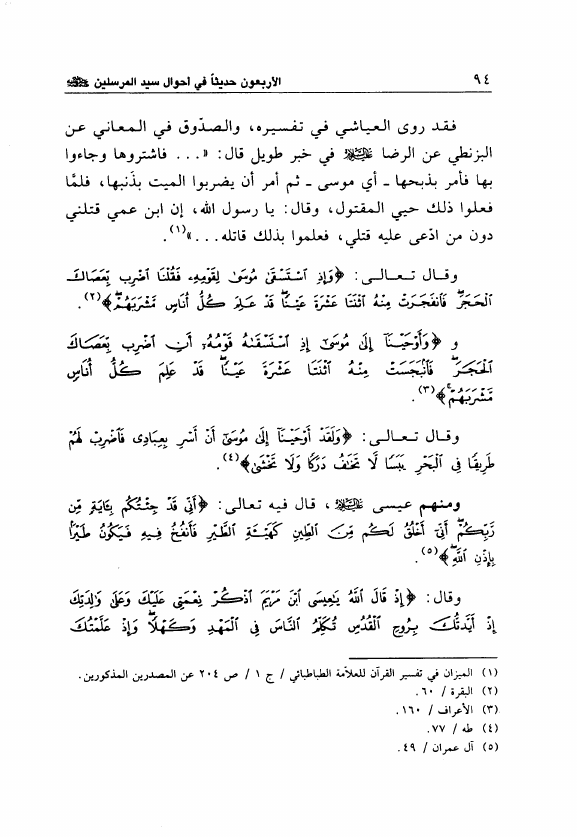 ٩٤ الأربعون حديثاً في أحوال سيد المرسلين ﷺ
فقد روى العياشي في تفسيره، والصدّوق في المعاني عن
البزنطي عن الرضا عليه السلام في خبر طويل قال: «... فاشتروها وجاءوا
بها فأمر بذبحها ـ أي موسى ـ ثم أمر أن يضربوا الميت بذَنبها، فلمَّا
فعلوا ذلك حيي المقتول، وقال: يا رسول الله، إن ابن عمي قتلني
دون من ادّعى عليه قتلي، فعلموا بذلك قاتله...»(١).
وقال تعالى: ﴿وَإِذِ ٱسْتَسْقَىٰ مُوسَىٰ لِقَوْمِهِۦ فَقُلْنَا ٱضْرِب بِّعَصَاكَ
ٱلْحَجَرَۖ فَٱنفَجَرَتْ مِنْهُ ٱثْنَتَا عَشْرَةَ عَيْنًاۖ قَدْ عَلِمَ كُلُّ أُنَاسٍ مَّشْرَبَهُمْۖ﴾(٢).
و ﴿وَأَوْحَيْنَآ إِلَىٰ مُوسَىٰٓ إِذِ ٱسْتَسْقَىٰهُ قَوْمُهُۥٓ أَنِ ٱضْرِب بِّعَصَاكَ
ٱلْحَجَرَۖ فَٱنۢبَجَسَتْ مِنْهُ ٱثْنَتَا عَشْرَةَ عَيْنًاۖ قَدْ عَلِمَ كُلُّ أُنَاسٍ
مَّشْرَبَهُمْۚ﴾(٣).
وقال تعالى: ﴿وَلَقَدْ أَوْحَيْنَآ إِلَىٰ مُوسَىٰٓ أَنْ أَسْرِ بِعِبَادِى فَٱضْرِبْ لَهُمْ
طَرِيقًا فِى ٱلْبَحْرِ يَبَسًا لَّا تَخَٰفُ دَرَكًا وَلَا تَخْشَىٰ﴾(٤).
ومنهم عيسى عليه السلام، قال فيه تعالى: ﴿أَنِّى قَدْ جِئْتُكُم بِـَٔايَةٍ مِّن
رَّبِّكُمْۖ أَنِّىٓ أَخْلُقُ لَكُم مِّنَ ٱلطِّينِ كَهَيْـَٔةِ ٱلطَّيْرِ فَأَنفُخُ فِيهِ فَيَكُونُ طَيْرًۢا
بِإِذْنِ ٱللَّهِۖ﴾(٥).
وقال: ﴿إِذْ قَالَ ٱللَّهُ يَٰعِيسَى ٱبْنَ مَرْيَمَ ٱذْكُرْ نِعْمَتِى عَلَيْكَ وَعَلَىٰ وَٰلِدَتِكَ
إِذْ أَيَّدتُّكَ بِرُوحِ ٱلْقُدُسِ تُكَلِّمُ ٱلنَّاسَ فِى ٱلْمَهْدِ وَكَهْلًاۖ وَإِذْ عَلَّمْتُكَ
(١) الميزان في تفسير القرآن للعلاّمة الطباطبائي / ج ١ / ص ٢٠٤ عن المصدرين المذكورين.
(٢) البقرة / ٦٠.
(٣) الأعراف / ١٦٠.
(٤) طه / ٧٧.
(٥) آل عمران / ٤٩.